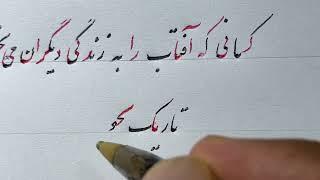 کسانی که آفتاب را به زندگی دیگران می
تاریک